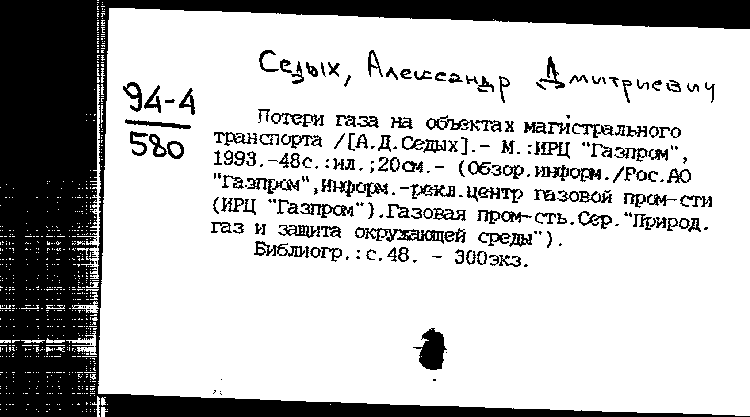 Седых, Александр Дмитриевич
94-4
580
Потери газа на объектах магистрального
транспорта /[А.Д.Седых].- М.:ИРЦ "Газпром",
1993.-48с.:ил.;20см.- (Обзор.информ./Рос.АО
"Газпром",Информ.-рекл.центр газовой пром-сти
(ИРЦ "Газпром").Газовая пром-сть.Сер."Природ.
газ и защита окружающей среды").
Библиогр.:с.48. - 300экз.